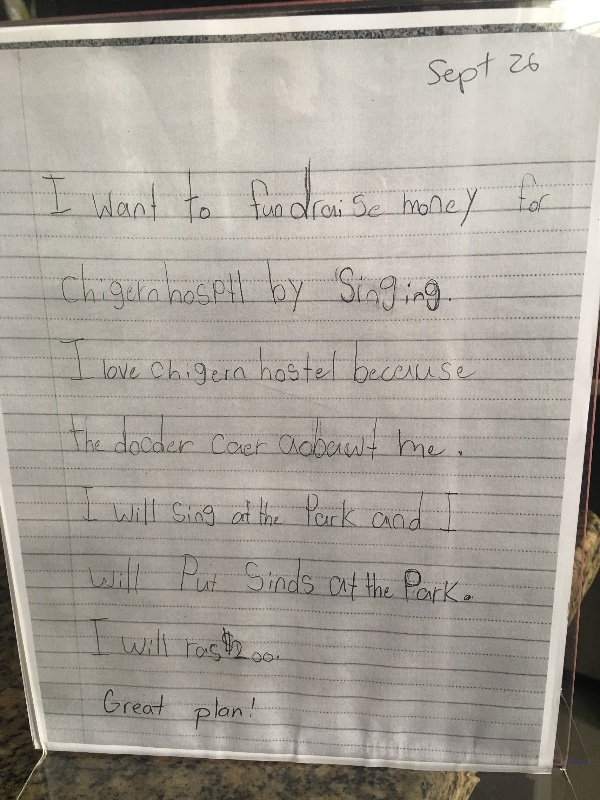 Sept 26
I want to fundraise money for
chigernhosptl by Singing.
I love chigern hostel because
the docder caer aobawt me.
I will sing at the Park and I
will Put Sinds at the Park.
I will ras $200.
Great plan!